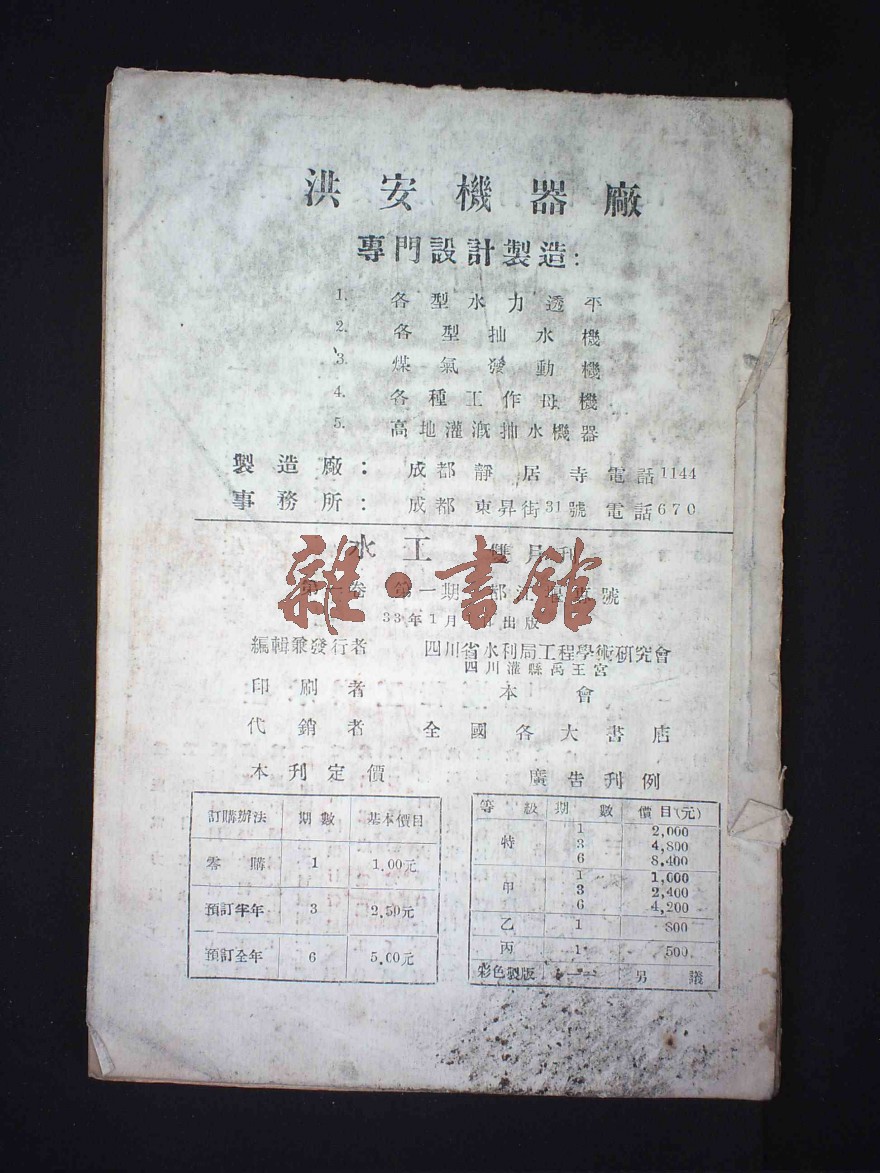 洪安機器廠
專門設計製造:
1. 各型水力透平
2. 各型抽水機
3. 煤氣發動機
4. 各種工作母機
5. 高地灌溉抽水機器
製造廠: 成都靜居寺電話1144
事務所: 成都東昇街31號電話670
水工 雙月刊
第一卷 第一期 都江堰專號
33年1月 出版
編輯兼發行者 四川省水利局工程學術研究會
四川灌縣禹王宮
印刷者 本會
代銷者 全國各大書店
本刊定價
訂購辦法 期數 基本價目
零購 1 1.00元
預訂半年 3 2.50元
預訂全年 6 5.00元
廣告刊例
等級 期數 價目(元)
特 1 2,000
3 4,800
6 8,400
甲 1 1,000
3 2,400
6 4,200
乙 1 800
丙 1 500
彩色製版 另議
雜·書館